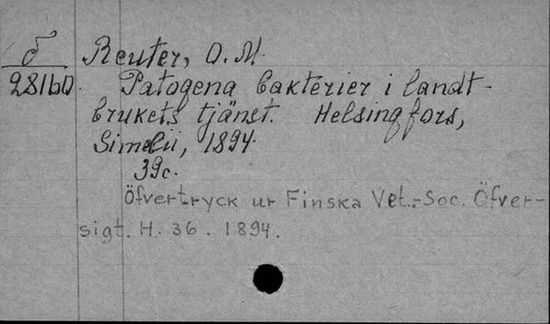 δ Reuter, O. M.
28160 Patogena bakterier i landt-
brukets tjänst. Helsingfors,
Simelii, 1894.
39c.
Öfvertryck ur Finska Vet.-Soc. Öfver-
sigt. H. 36. 1894.